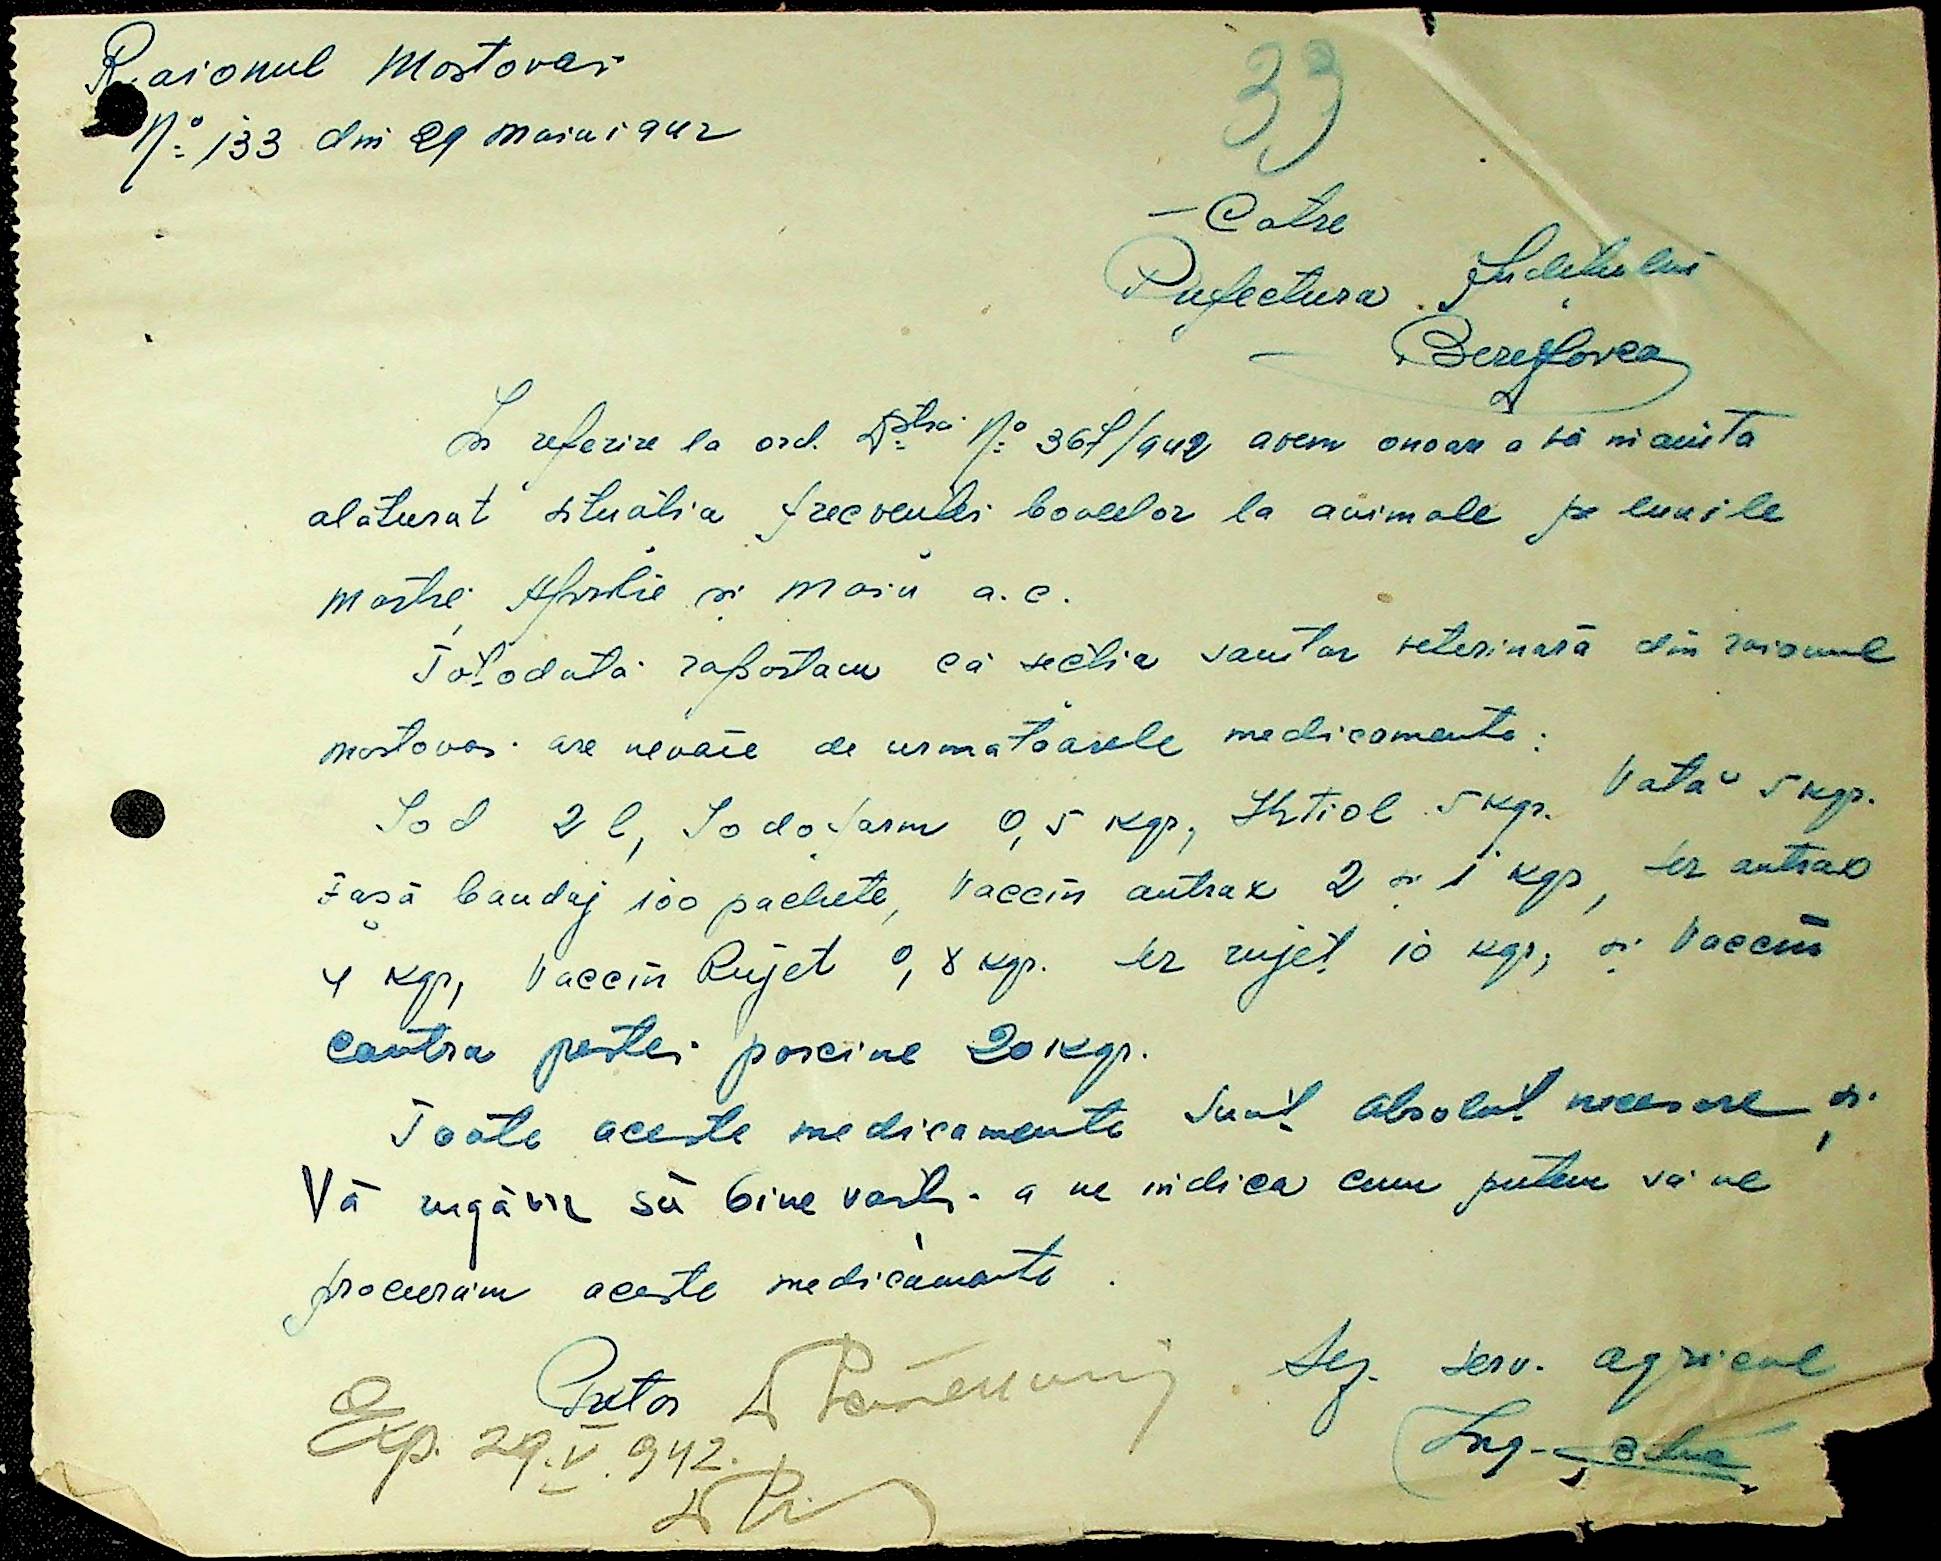 Raionul Mostovoi
Nº 133 din 29 Maiu 1942
39
– Catre
Prefectura Judetului
Berezovca
In referire la ord. Dstră Nº 367/942 avem onoare a vă inainta
alăturat situația frecvenței boalelor la animale pe lunile
Martie, Aprilie și Maiu a.c.
Totodată raportam că secția sanitar veterinară din raionul
Mostovoi are nevoie de următoarele medicamente:
Iod 2 l, Iodoform 0,5 kgr, Ihtiol 5 kgr. Vată 5 kgr.
Fașă bandaj 100 pachete, Vaccin antrax 2 și 1 kgr, ser antrax
4 kgr, Vaccin Rujet 0,8 kgr. ser rujet 10 kgr, și Vaccin
contra pestei porcine 20 kgr.
Toate aceste medicamente sunt absolut necesare și
Vă rugăm să binevoiți a ne indica cum putem să ne
procurăm aceste medicamente.
Pretor
Șef. serv. agricol
Exp. 29.V.942.
Ing.